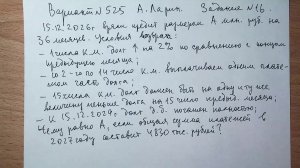 Вариант №525 А. Ларин. Задание №16.
15.12.2026г взяли кредит размером А млн. руб. на
36 месяцев. Условия возврата:
- 1 числа к.м. долг ↑ на 2% по сравнению с концом
предыдущего месяца;
- со 2-го по 14 число к.м. выплачиваем одним плате-
жом часть долга;
- 15 числа к.м. долг должен быть на одну и ту же
величину меньше долга на 15 число предыд. месяца;
- К 15.12.2029г. долг д.б. погашен полностью.
Чему равно А, если общая сумма платежей в
2027 году составит 4830 тыс. рублей?